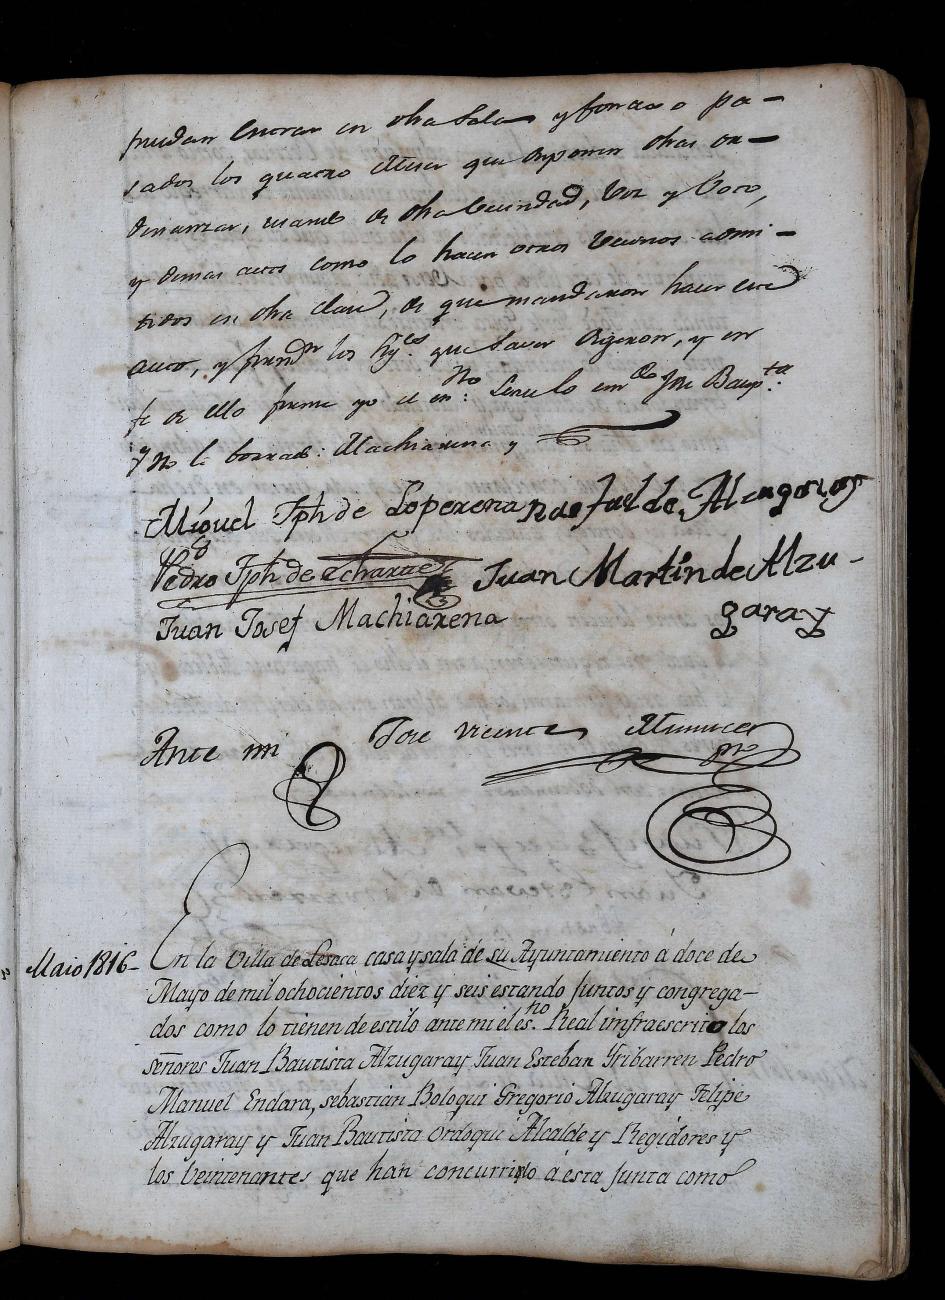 puedan entrar en dha Sala y forma o pa-
sados los quatro Meses que disponen dhas or-
denanzas, usando de dha Vecindad, Voz y Voto,
y demas actos como lo hacen otros Vecinos admi-
tidos en dha clase, de que mandaron hacer este
auto, y firmn los sres. que saver dijeron, y en
fe de ello firme yo el esno.
y no le borrado: Machiarena y
Miguel Jph de Loperena Rafael de Alzugaray
Pedro Jph de Echarte Juan Martin de Alzu-
garay
Juan Josef Machiarena
Ante mi Jose Vicente
Maio 1816-
En la Villa de Lesaca casa y sala de su Ayuntamiento á doce de
Mayo de mil ochocientos diez y seis estando Juntos y congrega-
dos como lo tienen de estilo ante mi el esno. Real imfraescrito los
señores Juan Bautista Alzugaray Juan Esteban Yribarren Pedro
Manuel Endara, sebastian Boloqui Gregorio Alzugaray Felipe
Alzugaray y Juan Bautista Ordoqui Alcalde y Regidores y
los Veintenantes que han concurrido á esta Junta como